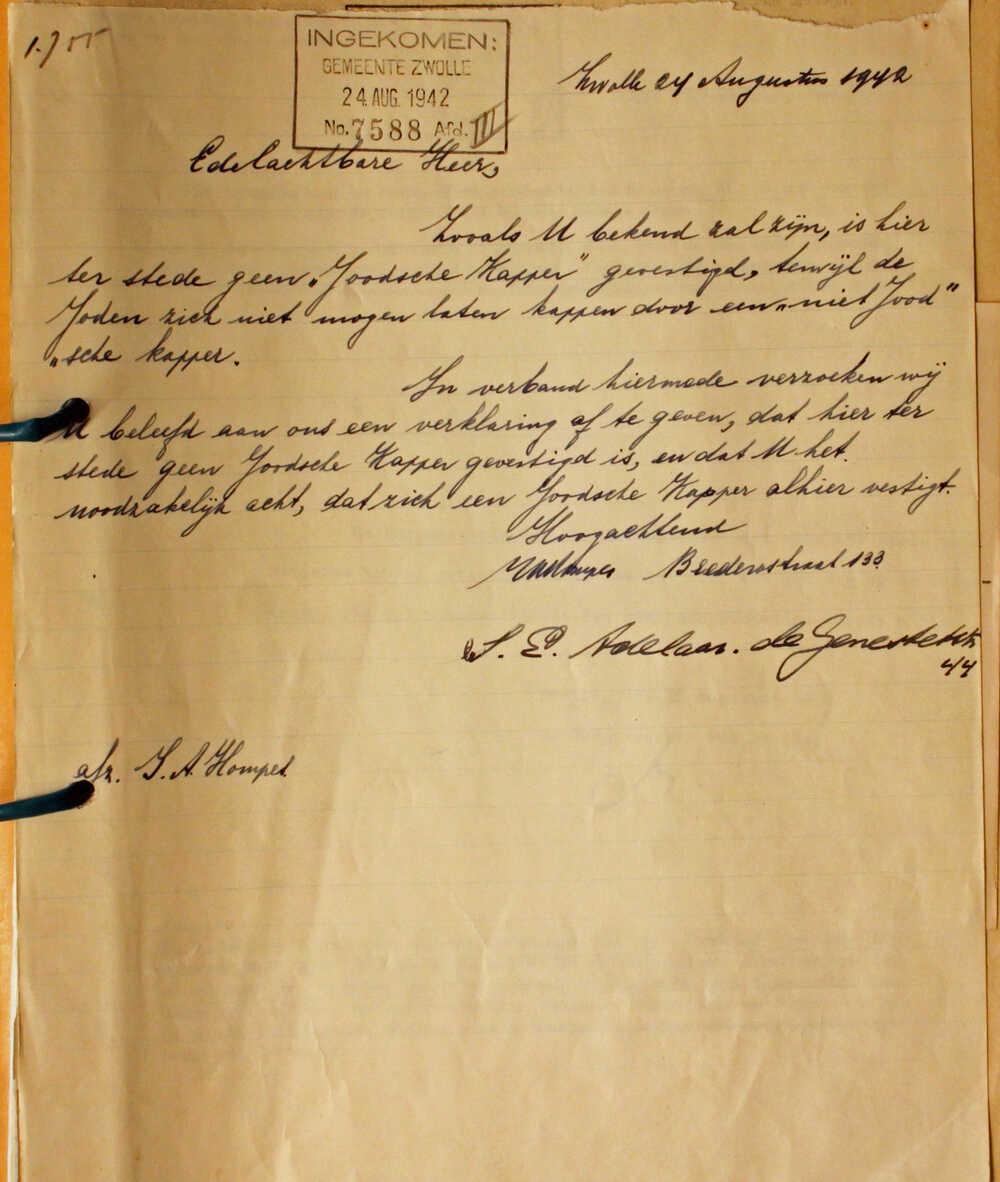 1.755
INGEKOMEN:
GEMEENTE ZWOLLE
24. AUG. 1942
No. 7588 Afd. III
Zwolle 24 Augustus 1942
Edelachtbare Heer,
Zooals U bekend zal zijn, is hier
ter stede geen „Joodsche Kapper" gevestigd, terwijl de
Joden zich niet mogen laten kappen door een „niet Jood"
„sche kapper.
In verband hiermede verzoeken wij
U beleefd aan ons een verklaring af te geven, dat hier ter
stede geen Joodsche Kapper gevestigd is, en dat U het.
noodzakelijk acht, dat zich een Joodsche Kapper alhier vestigt.
Hoogachtend
Brederostraat 133
S. E. Adelaar. de Genestetstr
44
afz. S. A. Hompes